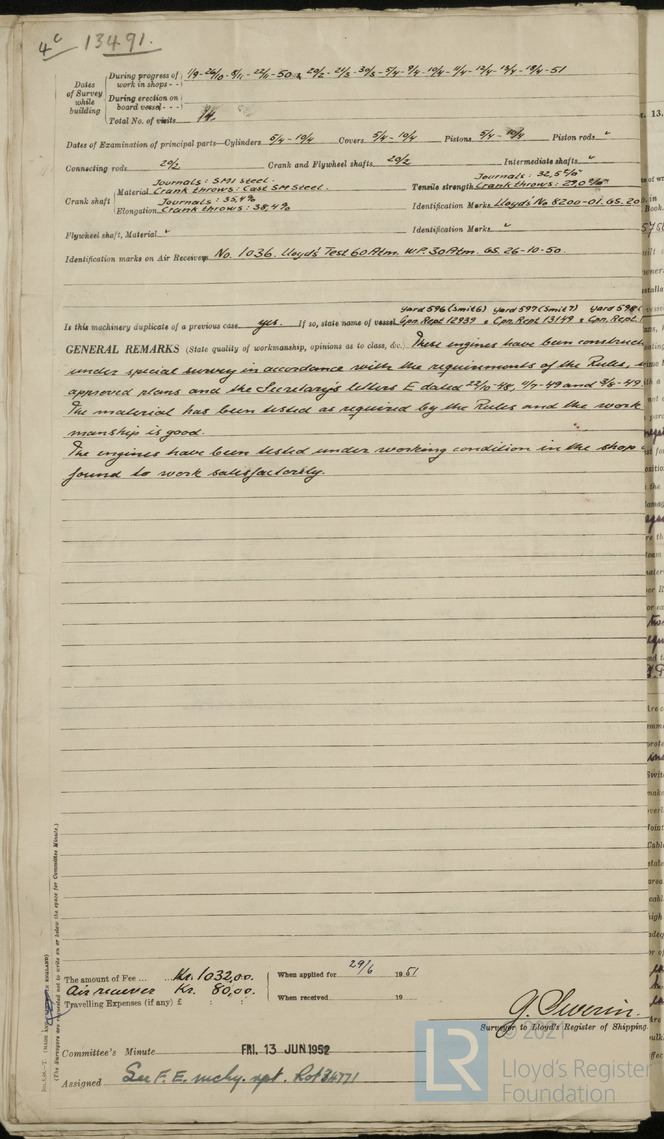 4c 13491.
Dates of Survey while building
During progress of work in shops - - 1/9-26/10-8/11-22/11-50 & 20/2-21/3-30/3-5/4-9/4-10/4-11/4-12/4-13/4-18/4-51
During erection on board vessel - - -
Total No. of visits 14.
Dates of Examination of principal parts—Cylinders 5/4-10/4 Covers 5/4-10/4 Pistons 5/4-10/4 Piston rods "
Connecting rods 20/2 Crank and Flywheel shafts 20/2 Intermediate shafts "
Crank shaft Material Journals: SMI steel. Crank throws: Cast SM Steel. Tensile strength Journals: 32,5 Crank throws: 29,0
Elongation Journals: 35,4% Crank throws: 38,4% Identification Marks Lloyd's No 8200-01. GS. 20
Flywheel shaft, Material " Identification Marks "
Identification marks on Air Receivers No. 1036. Lloyd's Test 60 Atm. W.P. 30 Atm. GS. 26-10-50.
Yard 596 (Smit 6) Yard 597 (Smit 7) Yard 598 (
Is this machinery duplicate of a previous case yes. If so, state name of vessel Cpn. Rept. 12939 & Cpn. Rept 13149 & Cpn. Rept. 1
GENERAL REMARKS (State quality of workmanship, opinions as to class, &c.) These engines have been construc
under special survey in accordance with the requirements of the Rules,
approved plans and the Secretary's letters E dated 22/10-48, 11/7-49 and 8/6-49.
The material has been tested as required by the Rules and the work
manship is good.
The engines have been tested under working condition in the shop
found to work satisfactorily.
(The Surveyors are requested not to write on or below the space for Committee Minute.)
The amount of Fee ... Kr. 1032,00. When applied for 29/6 1951
Air receiver Kr. 80,00.
Travelling Expenses (if any) £ : : When received 19
G. Severin.
Surveyor to Lloyd's Register of Shipping
Committee's Minute FRI. 13 JUN 1952
Assigned See F. E. mchy. rpt. Rot 34771
© 2021
LR
Lloyd's Register
Foundation